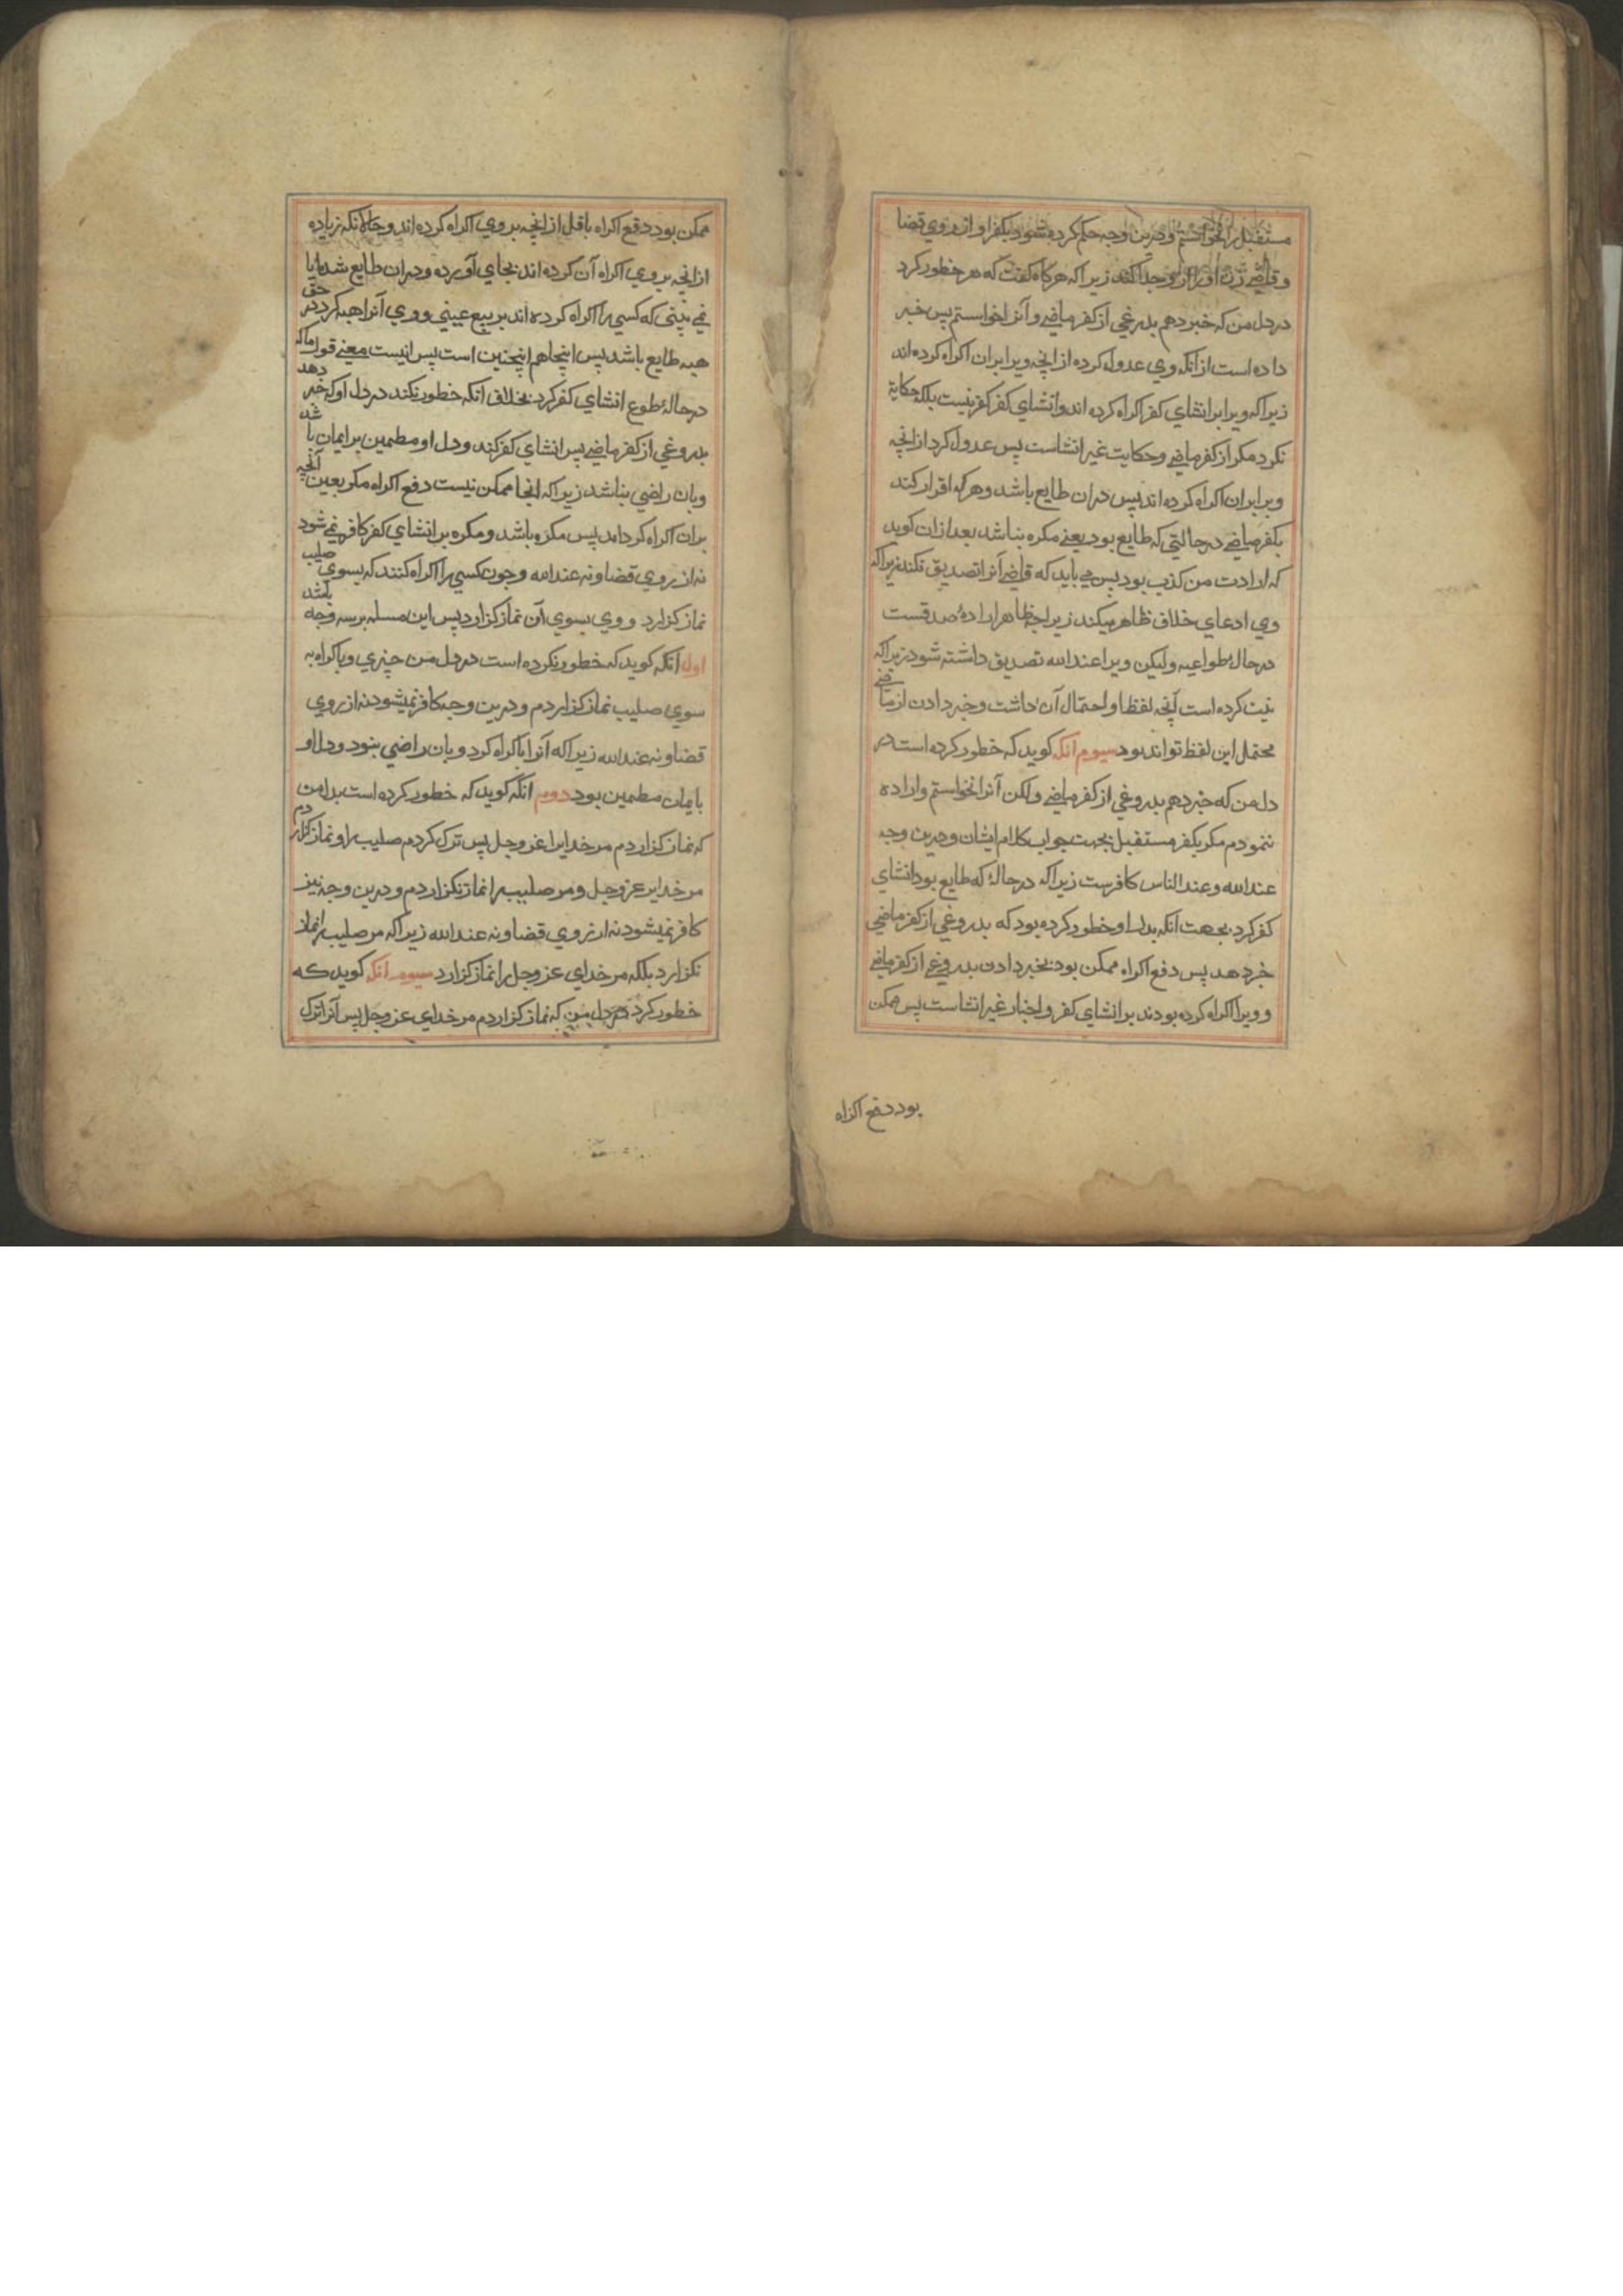 مستقبل را نخواستم و درین وجه حکم کرده شود بکفر او از روی قضا
و قاضی زن او را از وی جدا کند زیراکه هرکاه کفت که هر خطور کرد
در دل من که خبر دهم بدروغی از کفر ماضی و آنرا خواستم پس خبر
داده است از انکه وی عدول کرده از انچه ویرا بران اکراه کرده اند
زیراکه ویرا بر انشای کفر اکراه کرده اند و انشای کفر کفر نیست بلکه حکایة
نکرد مکر از کفر ماضی و حکایت غیر انشاست پس عدول کرد از انچه
ویرا بران اکراه کرده اند پس دران طایع باشد و هرکه اقرار کند
بکفر ماضی در حالتی که طایع بود یعنی مکره نباشد بعد ازان کوید
که ارادت من کذب بود پس می باید که قاضی آنرا تصدیق نکند زیراکه
وی ادعای خلاف ظاهر میکند زیراچه ظاهر ارادهٔ صدقست
در حال طواعیه ولیکن ویرا عند الله تصدیق داشته شود زیراکه
نیت کرده است آنچه لفظ او احتمال آن داشت و خبر دادن از ماضی
محتمل این لفظ تواند بود سیوم انکه کوید که خطور کرده است در
دل من که خبر دهم بدروغی از کفر ماضی ولکن آنرا نخواستم و اراده
ننمودم مکر بکفر مستقبل بجهت جواب کلام ایشان و درین وجه
عند الله و عند الناس کافرست زیراکه در حالهٔ که طایع بود انشای
کفر کرد بجهت انکه بدل او خطور کرده بود که بدروغی از کفر ماضی
خبر دهد پس دفع اکراه ممکن بود بخبر دادن بدروغی از کفر ماضی
و ویرا اکراه کرده بودند بر انشای کفر و اخبار غیر انشاست پس ممکن
بود دفع اکراه
ممکن بود دفع اکراه باقل از انچه بر وی اکراه کرده اند و حالانکه زیاده
از انچه بر وی اکراه آن کرده اند بجای آورده و دران طایع شد ایا
نمی بینی که کسی را اکراه کرده اند بر بیع عینی و وی آنرا هبه کرد در حق
هبه طایع باشد پس اینجا هم اینچنین است پس انیست معنی قول ما که
در حالهٔ طوع انشای کفر کرد بخلاف انکه خطور نکند در دل او که خبر دهد
بدروغی از کفر ماضی پس انشای کفر کند و دل او مطمین بر ایمان باشد
و بان راضی نباشد زیراکه انجا ممکن نیست دفع اکراه مکر بعین آنچه
بران اکراه کرده اند پس مکره باشد و مکره بر انشای کفر کافر نمی شود
نه از روی قضا و نه عند الله و چون کسی را اکراه کنند که بسوی صلیب
نماز کزارد و وی بسوی آن نماز کزارد پس این مسله بر سه وجه باشد
اول انکه کوید که خطور نکرده است در دل من چیزی و باکراه به
سوی صلیب نماز کزاردم و درین وجه کافر نمیشود نه از روی
قضا و نه عند الله زیراکه آنرا باکراه کرد و بان راضی نبود و دل او
بایمان مطمین بود دوم انکه کوید که خطور کرده است بدل من
که نماز کزاردم مر خدایرا عز و جل پس ترک کردم صلیب را و نماز کزاردم
مر خدایرا عز و جل و مر صلیب را نماز نکزاردم و درین وجه نیز
کافر نمیشود نه از روی قضا و نه عند الله زیراکه مر صلیب را نماز
نکزارد بلکه مر خدای عز و جل را نماز کزارد سیوم انکه کوید که
خطور کرد در دل من که نماز کزاردم مر خدای عز و جل پس آنرا ترک